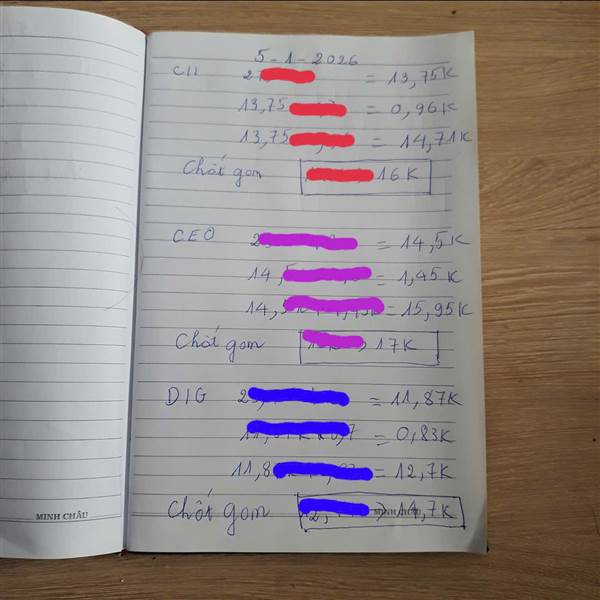 5-1-2026
CII = 13,75K
13,75 = 0,96K
13,75 = 14,71K
Chốt gom 16K
CEO = 14,5K
14,5 = 1,45K
14,5 = 15,95K
Chốt gom 17K
DIG = 11,87K
= 0,83K
11,8 = 12,7K
Chốt gom 14,7K
MINH CHÂU